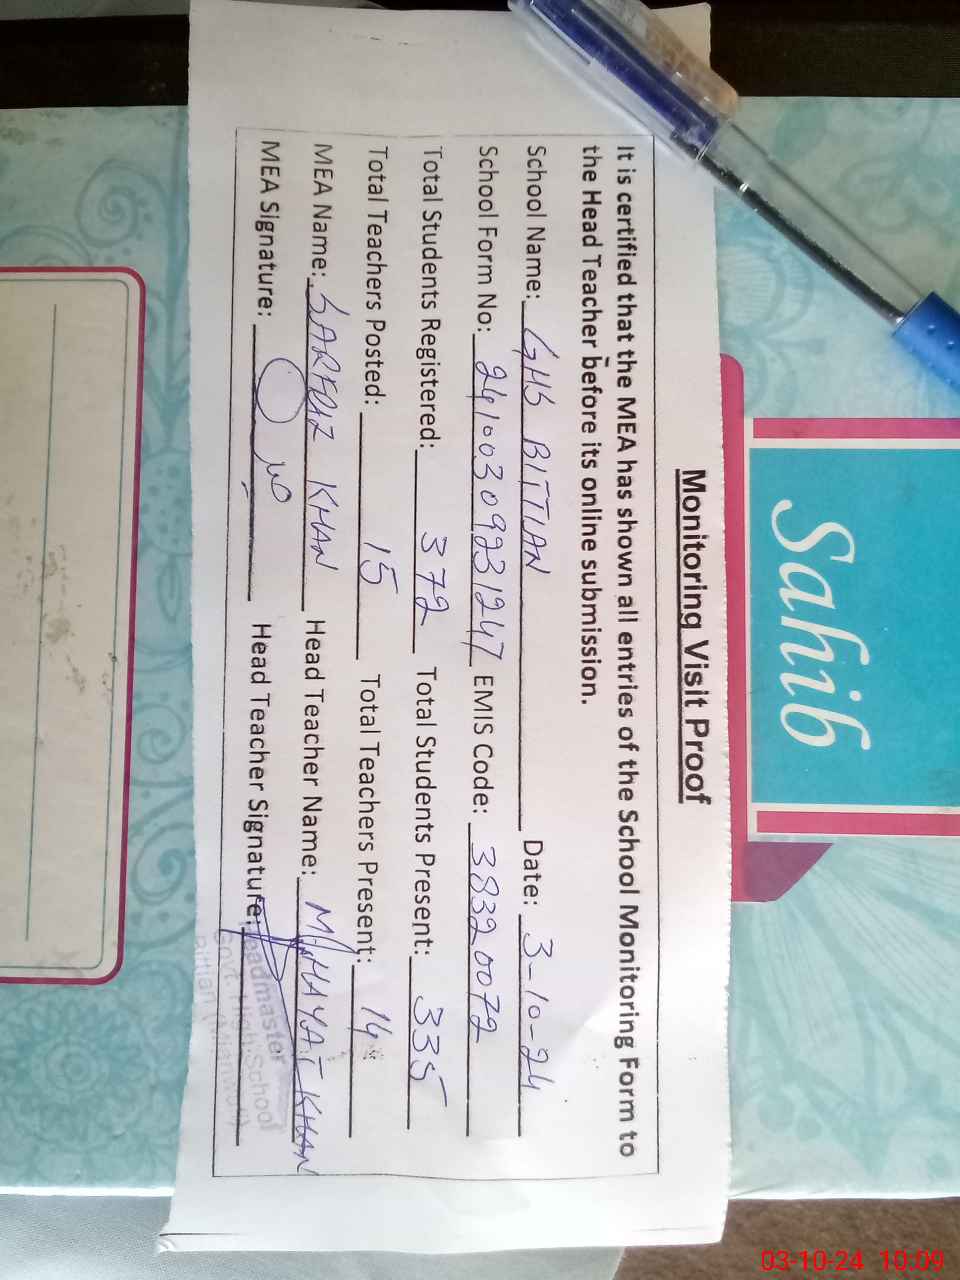 Monitoring Visit Proof
It is certified that the MEA has shown all entries of the School Monitoring Form to
the Head Teacher before its online submission.
School Name: GHS BITTIAN Date: 3-10-24
School Form No: 24100309231247 EMIS Code: 38320072
Total Students Registered: 372 Total Students Present: 335
Total Teachers Posted: 15 Total Teachers Present: 14
MEA Name: SARFRIZ KHAN Head Teacher Name: M. HAYAT KHAN
MEA Signature: Head Teacher Signature:
Headmaster
Govt. High School
Bittian (Mianwali)
Sahib
03-10-24 10:09